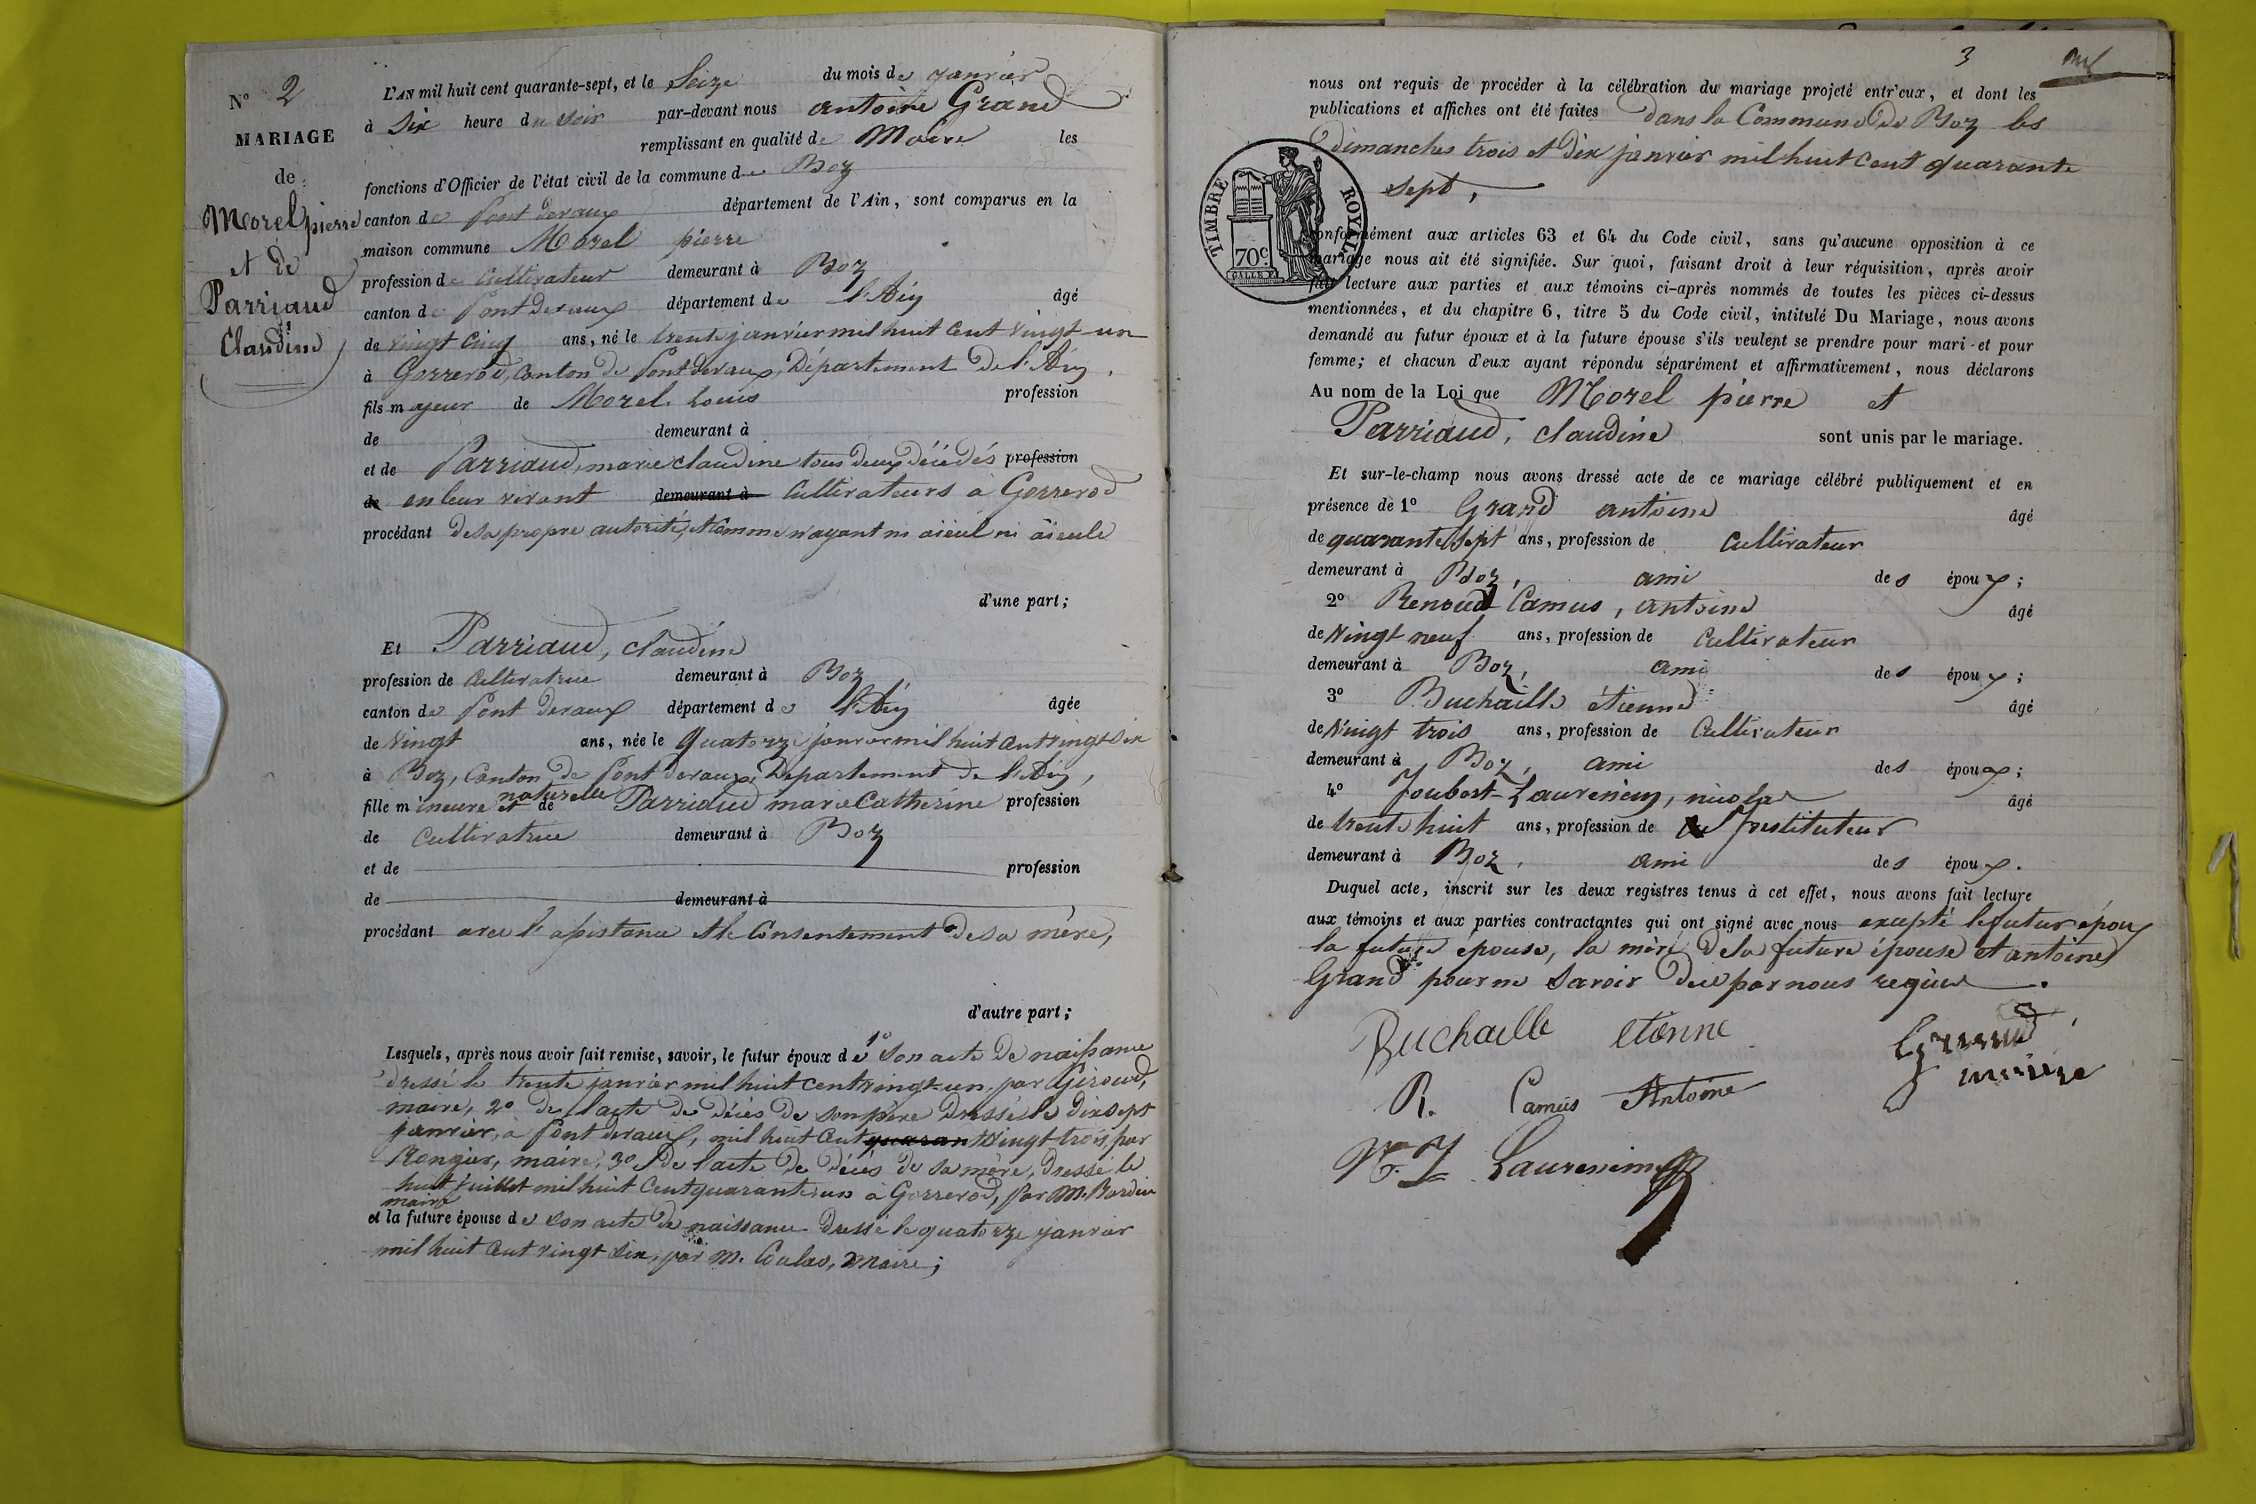 N° 2
MARIAGE
de
Morel pierre
et de
Parriaud
Claudine
L'AN mil huit cent quarante-sept, et le Seize du mois de janvier
à Six heure du soir par-devant nous antoine Grand
remplissant en qualité de Maire les
fonctions d'Officier de l'état civil de la commune de Boz
canton de Pont devaux département de l'Ain, sont comparus en la
maison commune Morel pierre
profession de Cultivateur demeurant à Boz
canton de Pont devaux département de l'Ain âgé
de vingt cinq ans, né le trente janvier mil huit cent vingt-un
à Gorrevod, Canton de Pont devaux, Département de l'Ain,
fils majeur de Morel Louis profession
de demeurant à
et de Parriaud, marie claudine tous deux décédés profession
de en leur vivant demeurant à Cultivateurs à Gorrevod
procédant de sa propre autorité, et comme n'ayant ni aïeul ni aïeule
d'une part;
Et Parriaud, claudine
profession de Cultivatrice demeurant à Boz
canton de Pont devaux département de l'Ain âgée
de Vingt ans, née le quatorze janvier mil huit cent vingt six
à Boz, Canton de Pont devaux, Département de l'Ain,
fille mineure et naturelle de Parriaud marie Catherine profession
de Cultivatrice demeurant à Boz
et de profession
de demeurant à
procédant avec l'assistance et le Consentement de sa mère,
d'autre part;
Lesquels, après nous avoir fait remise, savoir, le futur époux de 1° son acte de naissance
dressé le trente janvier mil huit cent vingt-un, par Giroud,
maire, 2° de l'acte de décès de son père dressé le dix sept
janvier, à Pont devaux, mil huit cent quarant vingt trois, par
Rongier, maire, 3° de l'acte de décès de sa mère, dressé le
huit juillet mil huit cent quarante un à Gorrevod, par M. Bardin
maire
et la future épouse de son acte de naissance dressé le quatorze janvier
mil huit cent vingt six, par M. Coulas, maire;
3
nous ont requis de procéder à la célébration du mariage projeté entr'eux, et dont les
publications et affiches ont été faites dans la Commune de Boz les
dimanches trois et dix janvier mil huit cent quarante
sept,
TIMBRE ROYAL
70c
conformément aux articles 63 et 64 du Code civil, sans qu'aucune opposition à ce
mariage nous ait été signifiée. Sur quoi, faisant droit à leur réquisition, après avoir
fait lecture aux parties et aux témoins ci-après nommés de toutes les pièces ci-dessus
mentionnées, et du chapitre 6, titre 5 du Code civil, intitulé Du Mariage, nous avons
demandé au futur époux et à la future épouse s'ils veulent se prendre pour mari et pour
femme; et chacun d'eux ayant répondu séparément et affirmativement, nous déclarons
Au nom de la Loi que Morel pierre et
Parriaud, claudine sont unis par le mariage.
Et sur-le-champ nous avons dressé acte de ce mariage célébré publiquement et en
présence de 1° Grand antoine âgé
de quarante sept ans, profession de Cultivateur
demeurant à Boz, ami des époux;
2° Renoud Camus, antoine âgé
de Vingt neuf ans, profession de Cultivateur
demeurant à Boz, ami des époux;
3° Buchaille étienne âgé
de Vingt trois ans, profession de Cultivateur
demeurant à Boz, ami des époux;
4° Joubert-Laurencin, nicolas âgé
de trente huit ans, profession de Instituteur
demeurant à Boz, ami des époux.
Duquel acte, inscrit sur les deux registres tenus à cet effet, nous avons fait lecture
aux témoins et aux parties contractantes qui ont signé avec nous excepté le futur époux
la future épouse, la mère de la future épouse et antoine
Grand pour ne savoir de ce par nous requis.
Buchaille etienne
Grand
maire
R. Camus Antoine
Laurencin